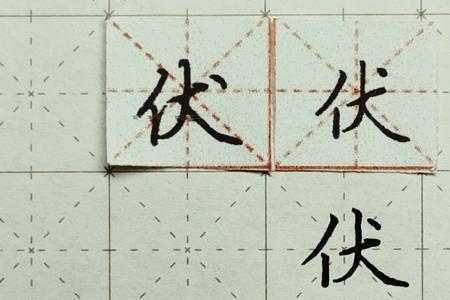 伏 伏
伏